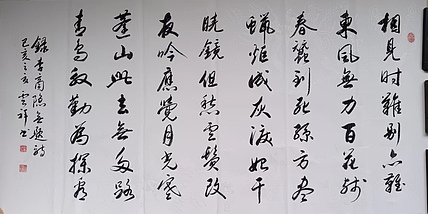 相見时難别亦難
東風無力百花残
春蠶到死絲方盡
蠟炬成灰淚始干
晓鏡但愁雲鬓改
夜吟應覺月光寒
蓬山此去无多路
青鸟殷勤為探看
錄李商隐無題詩
己亥之亥雲祥书